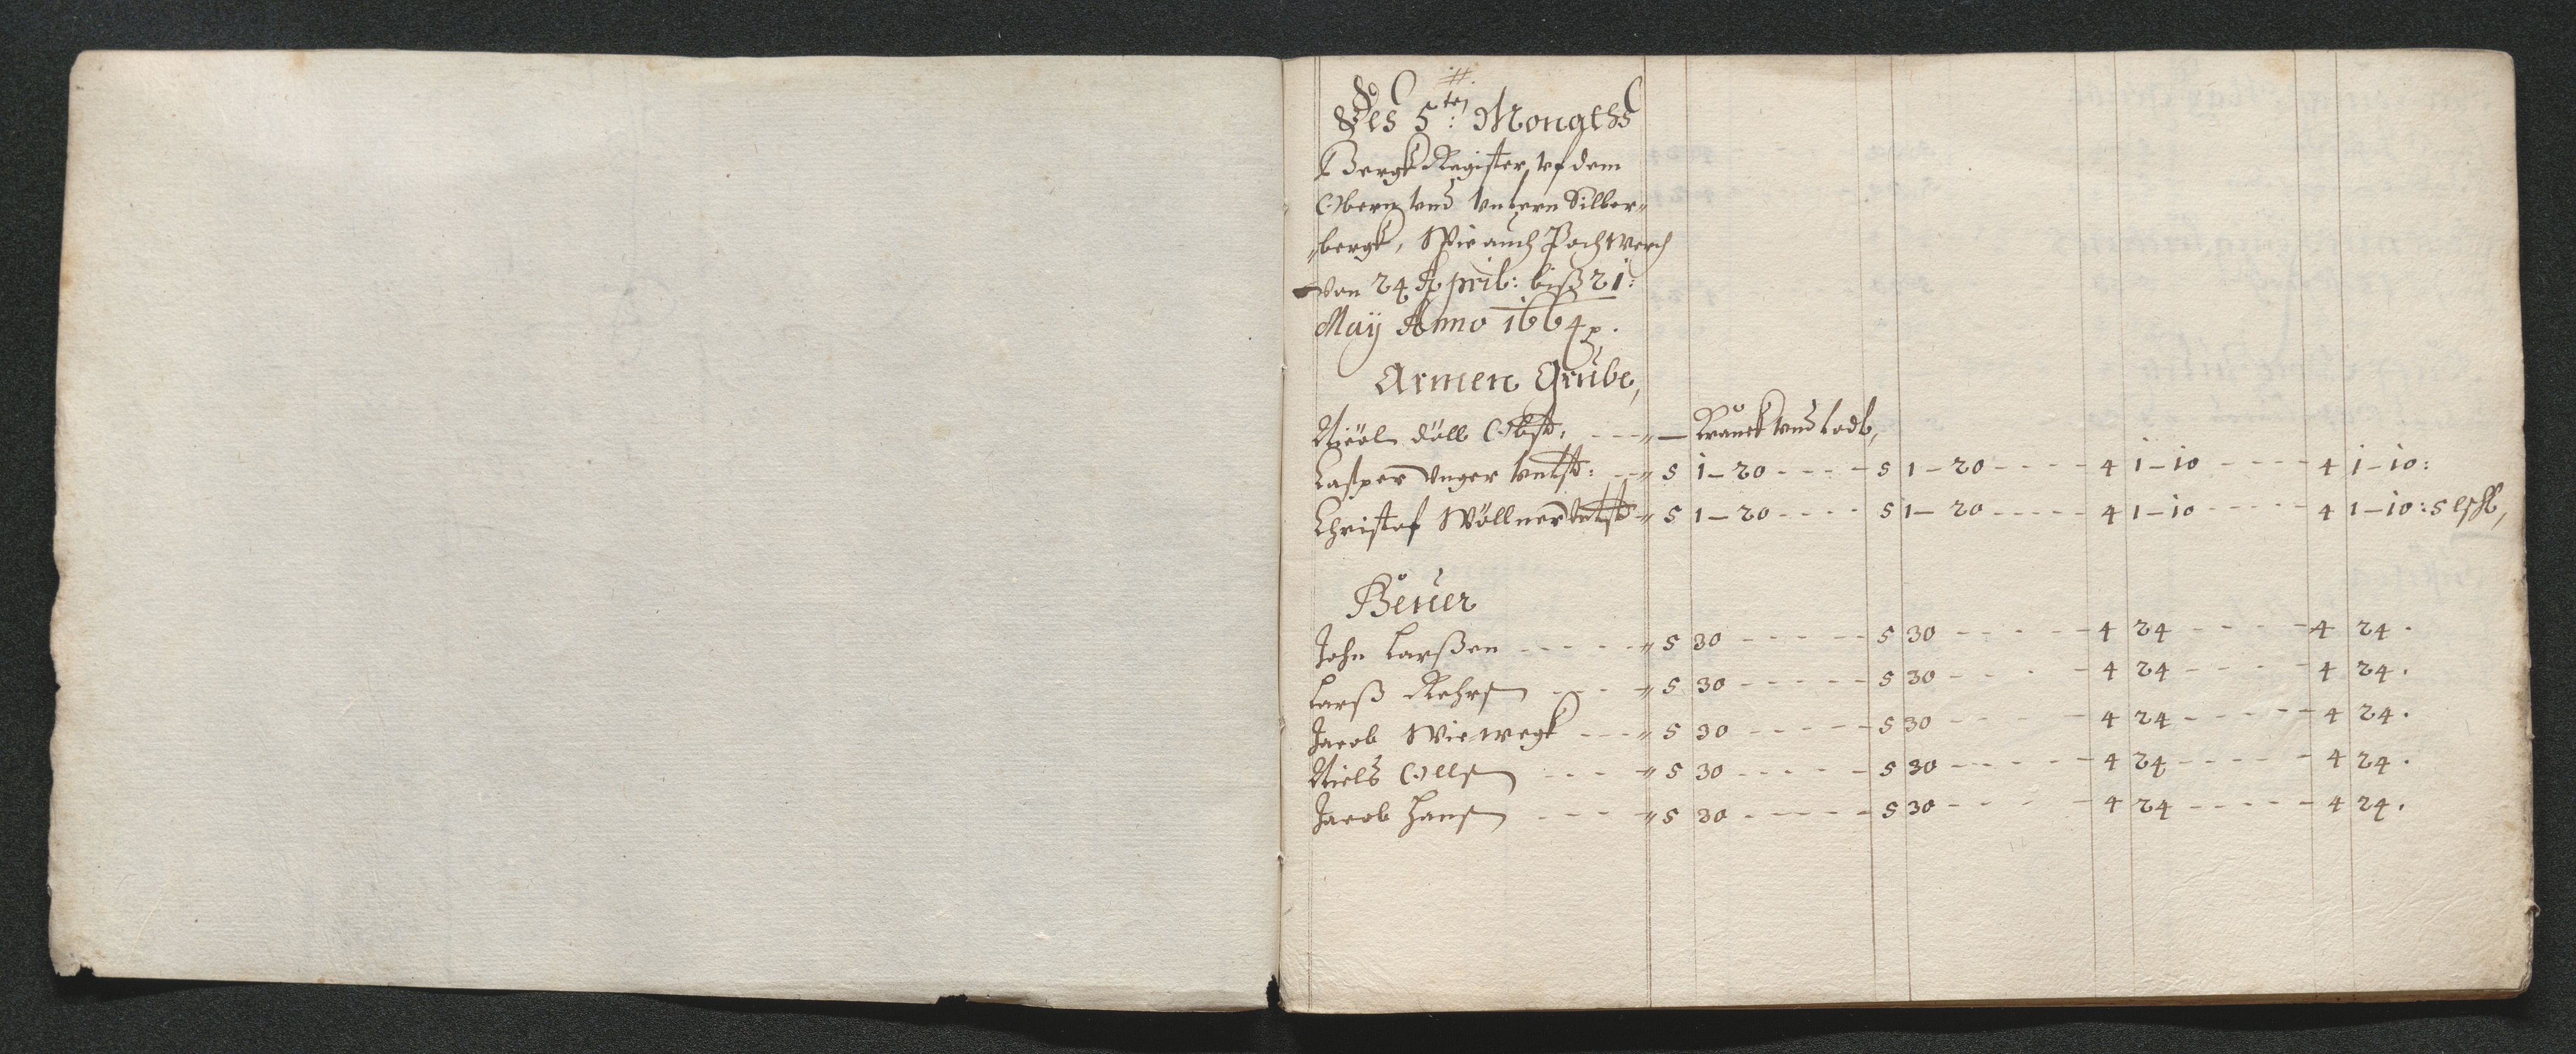 Des 5:ten Monaths
Bergk Register, vf dem
Obern vnd Vntern Silber„
„bergk, Wie auch Pochwerch
Von 24 April: biß 21:
Maÿ Anno 1664
Armen Grube,
Nicol Döll Obst: - - - „ — Kranck vnd todt,
Casper Unger Untst: - - „ 5 1–20 - - - - 5 1–20 - - - - 4 1–10 - - - - 4 1–10:
Christof Wöllner Untst „ 5 1–20 - - - - 5 1–20 - - - - 4 1–10 - - - - 4 1–10: 5
Heuer
John Larßen - - - - - „ 5 30 - - - - - 5 30 - - - - - 4 24 - - - - 4 24.
Larß - - - „ 5 30 - - - - - 5 30 - - - - 4 24 - - - - 4 24.
Jacob Wiewegk - - - „ 5 30 - - - - - 5 30 - - - - - 4 24 - - - - - 4 24.
Niels Ollsen - - - „ 5 30 - - - - - 5 30 - - - - - 4 24 - - - - - 4 24.
Jacob Hansen - - - „ 5 30 - - - - - 5 30 - - - - - 4 24 - - - - - 4 24.